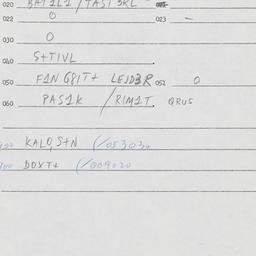 020 BAT1L1 / TAST3RL
022 0 023 –
030 0
040 S++IVL
050 FIN G8IT+ LEJD3R 052 0
060 PAS1K / RIM1T. QRUS
KALO,S+N (/053030
DOXT+ (/009020